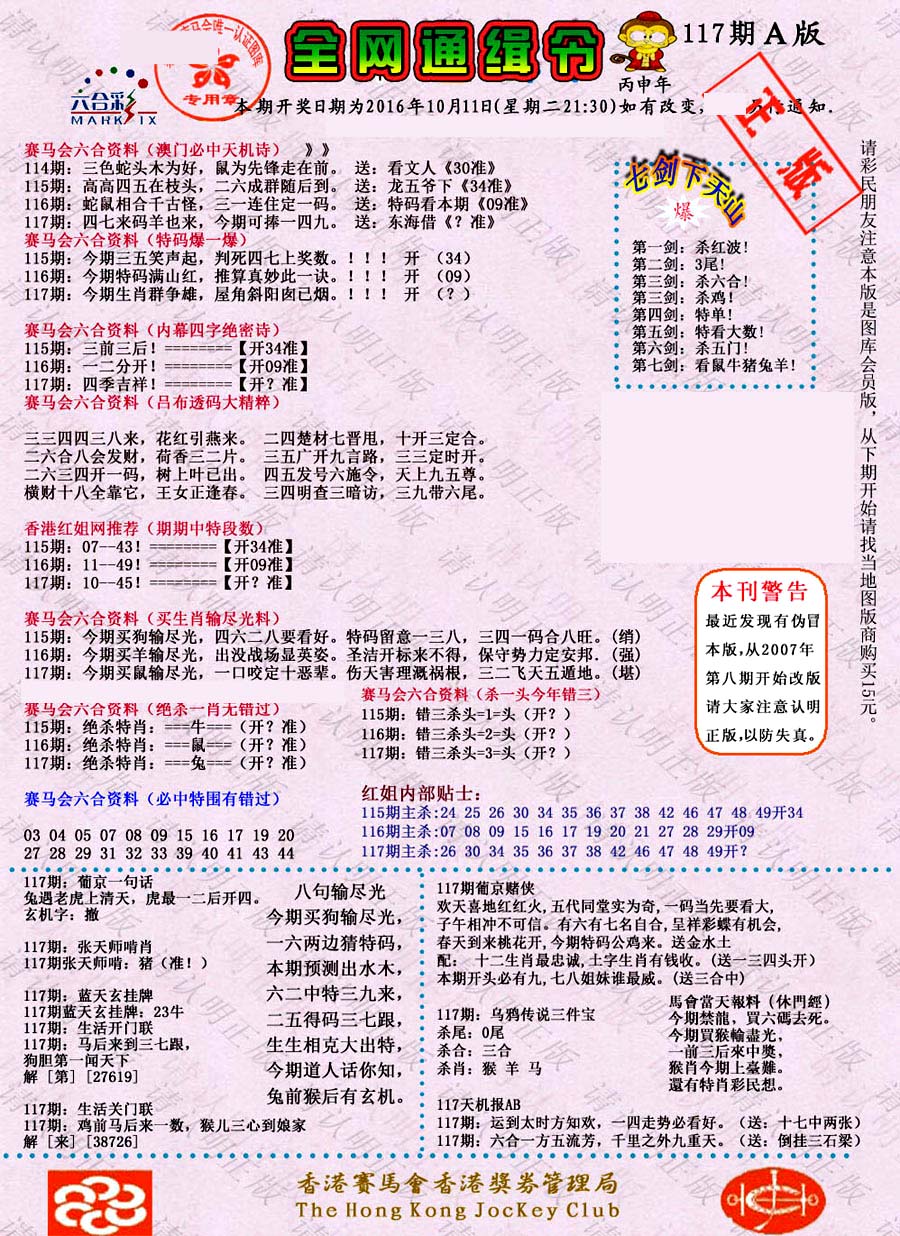 全网通缉令
117期A版
丙申年
六合彩
MARK SIX
专用章
正版
本期开奖日期为2016年10月11日(星期二21:30)如有改变, 另行通知.
赛马会六合资料（澳门必中天机诗） 》》
114期: 三色蛇头木为好，鼠为先锋走在前。 送: 看文人《30准》
115期: 高高四五在枝头，二六成群随后到。 送: 龙五爷下《34准》
116期: 蛇鼠相合千古怪，三一连住定一码。 送: 特码看本期《09准》
117期: 四七来码羊也来，今期可捧一四九。 送: 东海借《? 准》
赛马会六合资料（特码爆一爆）
115期: 今期三五笑声起，判死四七上奖数。！！！ 开 （34）
116期: 今期特码满山红，推算真妙此一诀。！！！ 开 （09）
117期: 今期生肖群争雄，屋角斜阳囱已烟。！！！ 开 （? ）
赛马会六合资料（内幕四字绝密诗）
115期: 三前三后! ========【开34准】
116期: 一二分开! ========【开09准】
117期: 四季吉祥! ========【开? 准】
赛马会六合资料（吕布透码大精粹）
三三四四三八来，花红引燕来。 二四楚材七晋用，十开三定合。
二六合八会发财，荷香三二片。 三五广开九言路，三三定时开。
二六三四开一码，树上叶已出。 四五发号六施令，天上九五尊。
横财十八全靠它，王女正逢春。 三四明查三暗访，三九带六尾。
香港红姐网推荐（期期中特段数）
115期: 07--43! ========【开34准】
116期: 11--49! ========【开09准】
117期: 10--45! ========【开? 准】
赛马会六合资料（买生肖输尽光料）
115期: 今期买狗输尽光，四六二八要看好。特码留意一三八，三四一码合八旺。(绡)
116期: 今期买羊输尽光，出没战场显英姿。圣洁开标来不得，保守势力定安邦．(强)
117期: 今期买鼠输尽光，一口咬定十恶辈。伤天害理溉祸根，三二飞天五遁地。(堪)
赛马会六合资料（绝杀一肖无错过）
115期: 绝杀特肖: ===牛===（开? 准）
116期: 绝杀特肖: ===鼠===（开? 准）
117期: 绝杀特肖: ===兔===（开? 准）
赛马会六合资料（杀一头今年错三）
115期: 错三杀头=1=头（开? ）
116期: 错三杀头=2=头（开? ）
117期: 错三杀头=3=头（开? ）
赛马会六合资料（必中特围有错过）
03 04 05 07 08 09 15 16 17 19 20
27 28 29 31 32 33 39 40 41 43 44
红姐内部贴士:
115期主杀:24 25 26 30 34 35 36 37 38 42 46 47 48 49开34
116期主杀:07 08 09 15 16 17 19 20 21 27 28 29开09
117期主杀:26 30 34 35 36 37 38 42 46 47 48 49开?
七剑下天山
爆
第一剑: 杀红波!
第二剑: 3尾!
第三剑: 杀六合!
第三剑: 杀鸡!
第四剑: 特单!
第五剑: 特看大数!
第六剑: 杀五门!
第七剑: 看鼠牛猪兔羊!
请彩民朋友注意本版是图库会员版，从下期开始请找当地图版商购买15元。
本刊警告
最近发现有伪冒
本版,从2007年
第八期开始改版
请大家注意认明
正版,以防失真。
117期: 葡京一句话
兔遇老虎上清天，虎最一二后开四。
玄机字: 撤
117期: 张天师啃肖
117期张天师啃: 猪（准! ）
117期: 蓝天玄挂牌
117期蓝天玄挂牌: 23牛
117期: 生活开门联
117期: 马后来到三七跟,
狗胆第一闻天下
解 [第] [27619]
117期: 生活关门联
117期: 鸡前马后来一数，猴儿三心到娘家
解 [来] [38726]
八句输尽光
今期买狗输尽光,
一六两边猜特码,
本期预测出水木,
六二中特三九来,
二五得码三七跟,
生生相克大出特,
今期道人话你知,
兔前猴后有玄机。
117期葡京赌侠
欢天喜地红红火,五代同堂实为奇,一码当先要看大,
子午相冲不可信。有六有七名自合,呈祥彩蝶有机会,
春天到来桃花开,今期特码公鸡来。送金水土
配: 十二生肖最忠诚,土字生肖有钱收。(送一三四头开)
本期开头必有九,七八姐妹谁最威。(送三合中)
117期: 乌鸦传说三件宝
杀尾: 0尾
杀合: 三合
杀肖: 猴 羊 马
馬會當天報料（休門經）
今期禁龍，買六碼去死。
今期買猴輸盡光，
一前三后來中獎，
猴肖今期上臺難。
還有特肖彩民想。
117天机报AB
117期: 运到太时方知欢，一四走势必看好。（送: 十七中两张）
117期: 六合一方五流芳，千里之外九重天。（送: 倒挂三石梁）
香港賽馬會香港獎券管理局
The Hong Kong JocKey Club